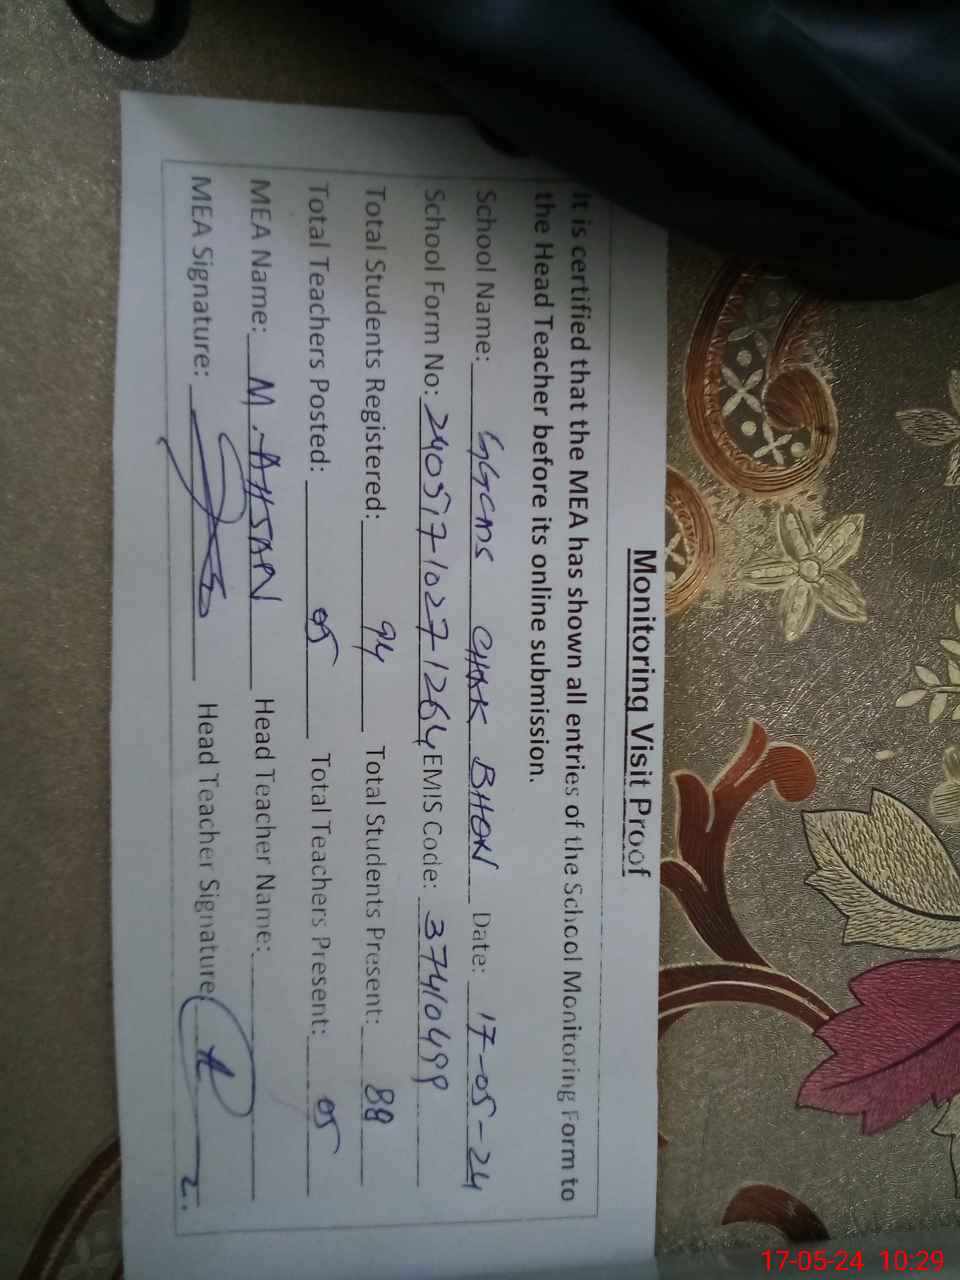 Monitoring Visit Proof
It is certified that the MEA has shown all entries of the School Monitoring Form to
the Head Teacher before its online submission.
School Name: GGCMS CHAK BHON Date: 17-05-24
School Form No: 240517102771264 EMIS Code: 37410499
Total Students Registered: 94 Total Students Present: 88
Total Teachers Posted: 05 Total Teachers Present: 05
MEA Name: M. AHSAN Head Teacher Name:
MEA Signature: Head Teacher Signature:
17-05-24 10:29